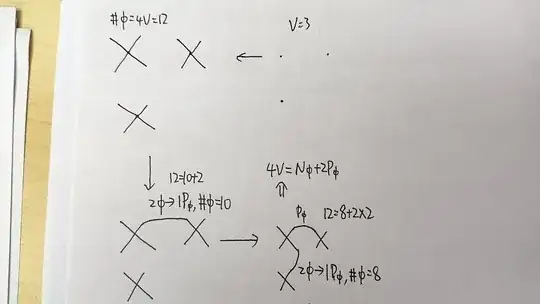 #ϕ=4V=12
V=3
12=10+2
2ϕ→1Pϕ,#ϕ=10
4V=Nϕ+2Pϕ
⇑
Pϕ 12=8+2×2
2ϕ→1Pϕ,#ϕ=8